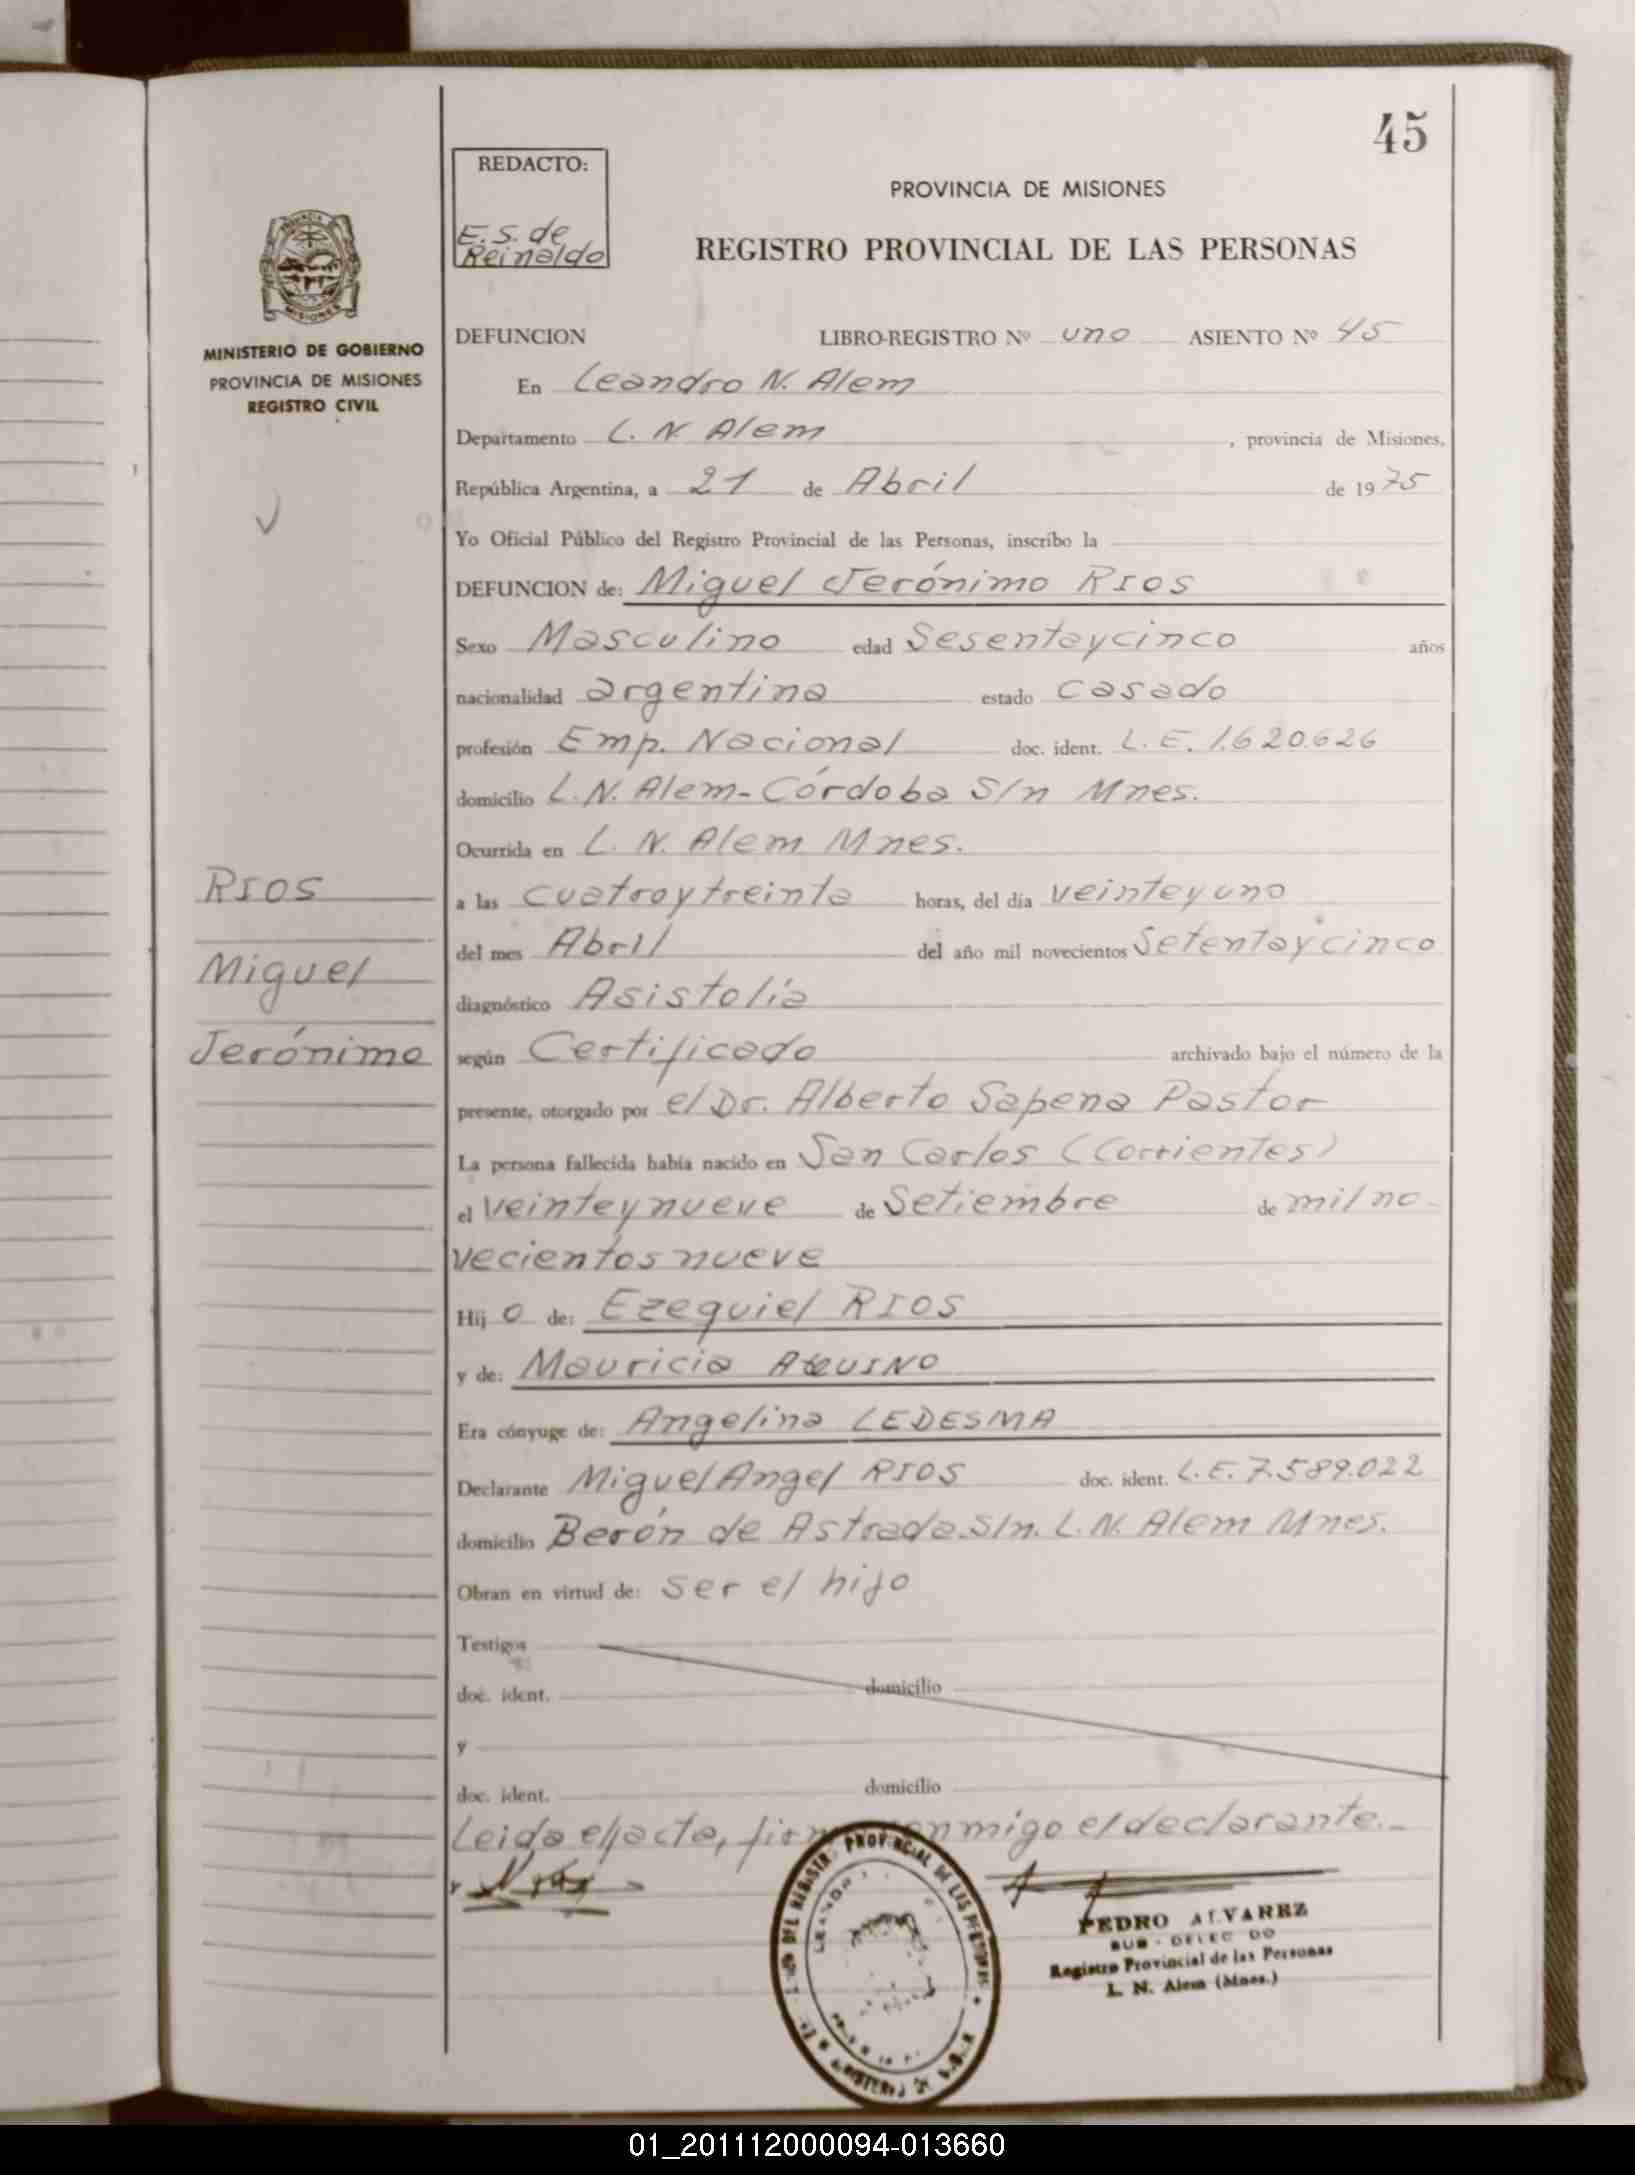 45
REDACTO:
E. S. de
Reinaldo
PROVINCIA DE MISIONES
REGISTRO PROVINCIAL DE LAS PERSONAS
MINISTERIO DE GOBIERNO
PROVINCIA DE MISIONES
REGISTRO CIVIL
DEFUNCION LIBRO-REGISTRO Nº uno ASIENTO Nº 45
En Leandro N. Alem
Departamento L. N. Alem , provincia de Misiones,
República Argentina, a 21 de Abril de 1975
Yo Oficial Público del Registro Provincial de las Personas, inscribo la
DEFUNCION de: Miguel Jerónimo RIOS
Sexo Masculino edad Sesentaycinco años
nacionalidad argentina estado casado
profesión Emp. Nacional doc. ident. L. E. 1.620.626
domicilio L. N. Alem - Córdoba S/n Mnes.
Ocurrida en L. N. Alem Mnes.
RIOS
Miguel
Jerónimo
a las cuatroytreinta horas, del día veinteyuno
del mes Abril del año mil novecientos Setentaycinco
diagnóstico Asistolia
según Certificado archivado bajo el número de la
presente, otorgado por el Dr. Alberto Sapena Pastor
La persona fallecida había nacido en San Carlos (Corrientes)
el veinteynueve de Setiembre de mil no-
vecientos nueve
Hijo de: Ezequiel RIOS
y de: Mauricia AQUINO
Era cónyuge de: Angelina LEDESMA
Declarante Miguel Angel RIOS doc. ident. L. E. 7.589.022
domicilio Berón de Astrada S/n. L. N. Alem Mnes.
Obran en virtud de: Ser el hijo
Testigos
doc. ident. domicilio
y
doc. ident. domicilio
Leida el acta, conmigo el declarante.-
PEDRO ALVAREZ
SUB - DELEGADO
Registro Provincial de las Personas
L. N. Alem (Mnes.)
01_201112000094-013660